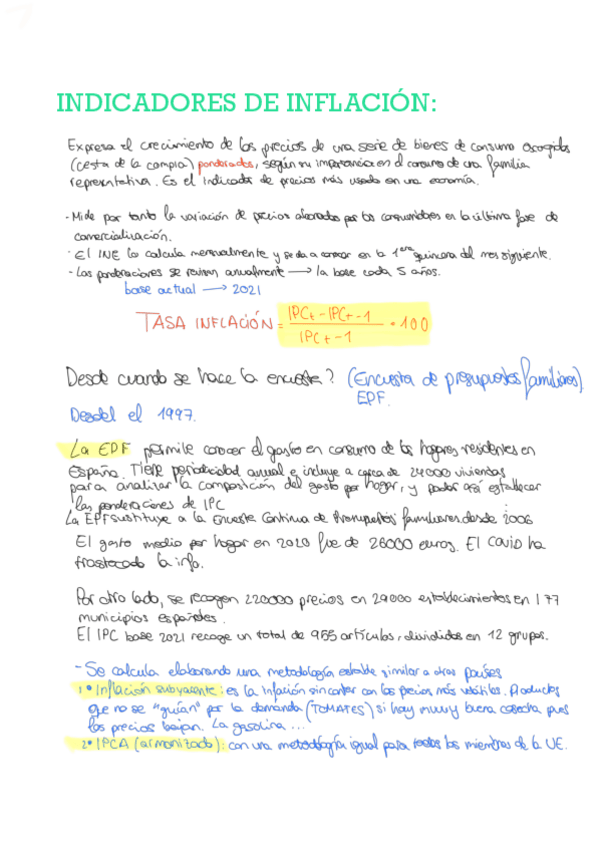 INDICADORES DE INFLACIÓN:
Expresa el crecimiento de los precios de una serie de bienes de consumo escogidos
(cesta de la compra) ponderados, según su importancia en el consumo de una familia
representativa. Es el Indicador de precios más usado en una economía.
- Mide por tanto la variación de precios abonados por los consumidores en la última fase de
comercialización.
· El INE lo calcula mensualmente y se da a conocer en la 1era quincena del mes siguiente.
- Las ponderaciones se revisan anualmente → la base cada 5 años.
base actual → 2021
TASA INFLACIÓN = (IPCt - IPCt-1) / (IPCt-1) · 100
Desde cuando se hace la encuesta? (Encuesta de presupuestos familiares)
EPF.
Desdel el 1997.
La EPF permite conocer el gasto en consumo de los hogares residentes en
España. Tiene periodicidad anual e incluye a cerca de 24000 viviendas
para analizar la composición del gasto por hogar, y poder así establecer
las ponderaciones de IPC
La EPF sustituye a la Encuesta Continua de Presupuestos familiares desde 2006
El gasto medio por hogar en 2020 fue de 26000 euros. El Covid ha
trastocado la info.
Por otro lado, se recogen 220000 precios en 29000 establecimientos en 177
municipios españoles.
El IPC base 2021 recoge un total de 955 artículos, divididos en 12 grupos.
- Se calcula elaborando una metodología estable similar a otros países
1• Inflación subyacente: es la Inflación sin contar con los precios más volátiles. Productos
que no se "guían" por la demanda (TOMATES) si hay muuy buena cosecha pues
los precios bajan. La gasolina ...
2• IPCA (armonizado): con una metodología igual para todos los miembros de la UE.